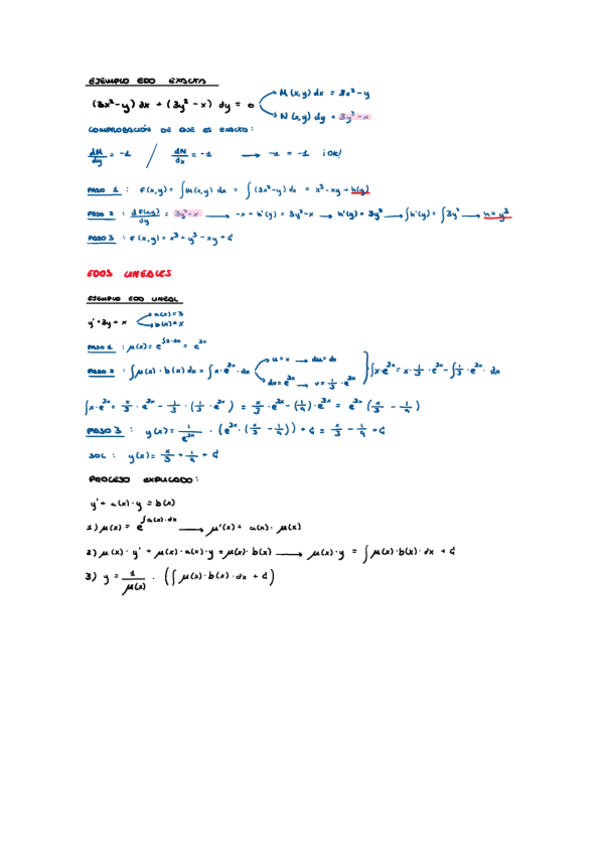 EJEMPLO EDO EXACTA
(3x²-y) dx + (3y²-x) dy = 0
M(x,y) dx = 3x²-y
N(x,y) dy = 3y²-x
COMPROBACIÓN DE QUE ES EXACTO:
dM/dy = -1 / dN/dx = -1 → -1 = -1 ¡OK!
PASO 1: F(x,y) = ∫M(x,y) dx = ∫(3x²-y) dx = x³-xy+h(y)
PASO 2: dF(x,y)/dy = 3y²-x → -x + h'(y) = 3y²-x → h'(y) = 3y² → ∫h'(y) = ∫3y² → h = y³
PASO 3: F(x,y) = x³ + y³ - xy + C
EDOS LINEALES
EJEMPLO EDO LINEAL
y' + 3y = x
a(x) = 3
b(x) = x
PASO 1: μ(x) = e^∫3·dx = e^3x
PASO 2: ∫μ(x)·b(x) dx = ∫x·e^3x·dx
u = x → du = dx
dv = e^3x → v = 1/3·e^3x
∫x·e^3x = x·1/3·e^3x - ∫1/3·e^3x·dx
∫x·e^3x = x/3·e^3x - 1/3·(1/3·e^3x) = x/3·e^3x - (1/9)·e^3x = e^3x (x/3 - 1/9)
PASO 3: y(x) = 1/e^3x · (e^3x·(x/3 - 1/9)) + C = x/3 - 1/9 + C
SOL: y(x) = x/3 + 1/9 + C
PROCESO EXPLICADO:
y' + a(x)·y = b(x)
1) μ(x) = e^∫a(x)·dx → μ'(x) = a(x)·μ(x)
2) μ(x)·y' + μ(x)·a(x)·y = μ(x)·b(x) → μ(x)·y = ∫μ(x)·b(x)·dx + C
3) y = 1/μ(x) · (∫μ(x)·b(x)·dx + C)